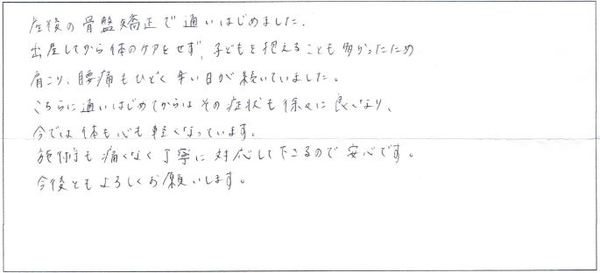 産後の骨盤矯正で通いはじめました.
出産してから体のケアをせず、子どもを抱えることも多かったため
肩こり、腰痛もひどく辛い日が続いていました。
こちらに通いはじめてからはその症状も徐々に良くなり、
今では体も心も軽くなっています。
施術も痛くなく丁寧に対応して下さるので安心です。
今後ともよろしくお願いします。